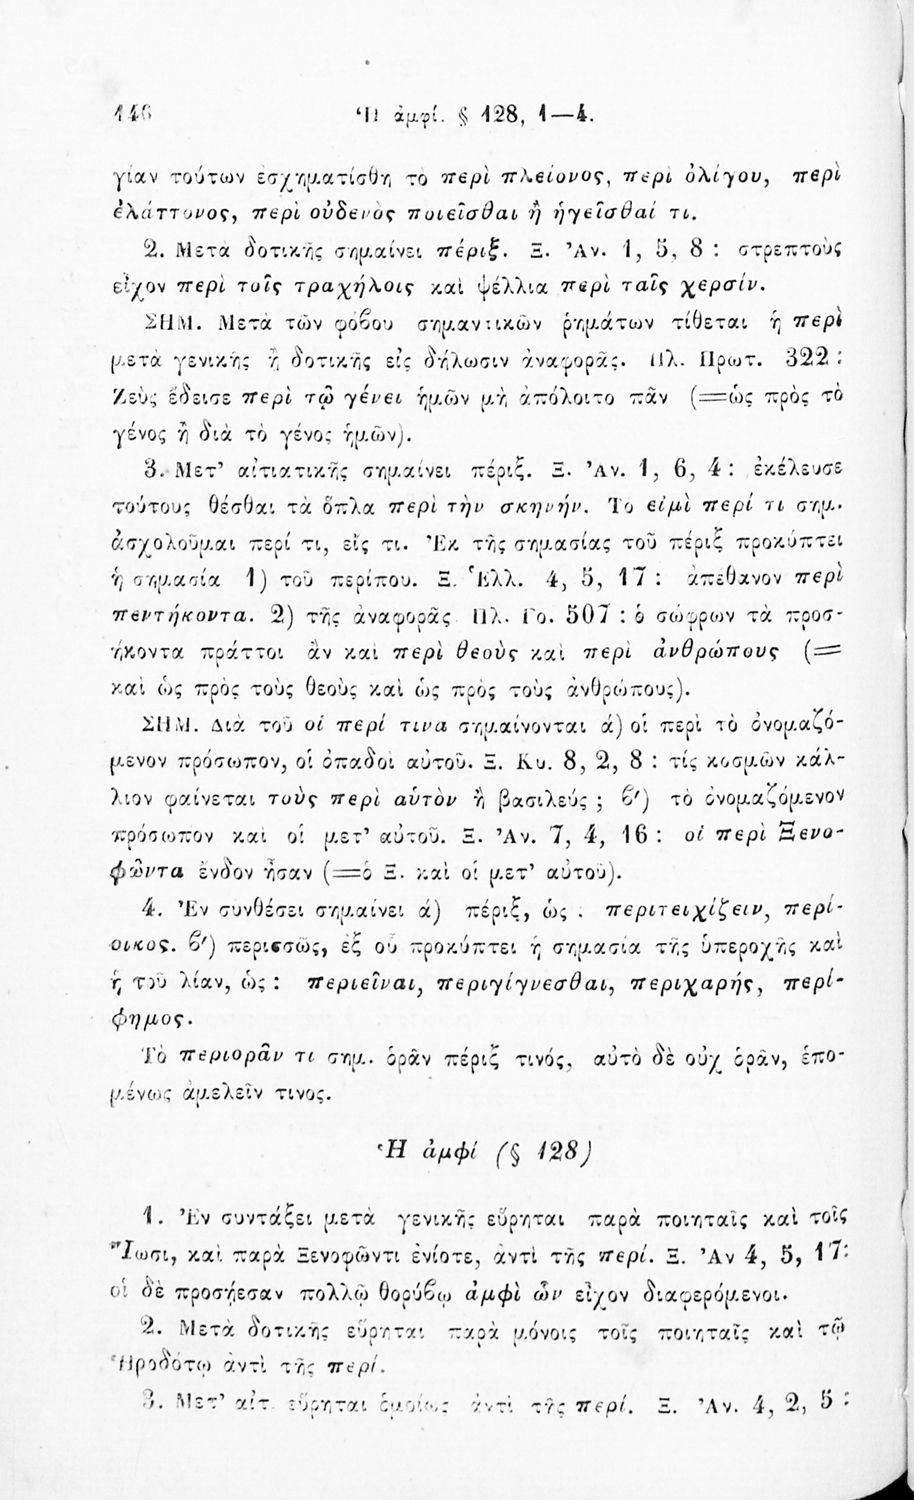 146 Ἡ ἀμφί. § 128, 1—4.
γίαν τούτων ἐσχηματίσθη τὸ περὶ πλείονος, περὶ ὀλίγου, περὶ
ἐλάττονος, περὶ οὐδενὸς ποιεῖσθαι ἢ ἡγεῖσθαί τι.
2. Μετὰ δοτικῆς σημαίνει πέριξ. Ξ. Ἀν. 1, 5, 8 : στρεπτοὺς
εἶχον περὶ τοῖς τραχήλοις καὶ ψέλλια περὶ ταῖς χερσίν.
ΣΗΜ. Μετὰ τῶν φόβου σημαντικῶν ῥημάτων τίθεται ἡ περὶ
μετὰ γενικῆς ἢ δοτικῆς εἰς δήλωσιν ἀναφορᾶς. Πλ. Πρωτ. 322 :
Ζεὺς ἔδεισε περὶ τῷ γένει ἡμῶν μὴ ἀπόλοιτο πᾶν (=ὡς πρὸς τὸ
γένος ἢ διὰ τὸ γένος ἡμῶν).
3. Μετ' αἰτιατικῆς σημαίνει πέριξ. Ξ. Ἀν. 1, 6, 4 : ἐκέλευσε
τούτους θέσθαι τὰ ὅπλα περὶ τὴν σκηνήν. Τὸ εἰμὶ περί τι σημ.
ἀσχολοῦμαι περί τι, εἴς τι. Ἐκ τῆς σημασίας τοῦ πέριξ προκύπτει
ἡ σημασία 1) τοῦ περίπου. Ξ. Ἑλλ. 4, 5, 17 : ἀπέθανον περὶ
πεντήκοντα. 2) τῆς ἀναφορᾶς Πλ. Γο. 507 : ὁ σώφρων τὰ προσ-
ήκοντα πράττοι ἂν καὶ περὶ θεοὺς καὶ περὶ ἀνθρώπους (=
καὶ ὡς πρὸς τοὺς θεοὺς καὶ ὡς πρὸς τοὺς ἀνθρώπους).
ΣΗΜ. Διὰ τοῦ οἱ περί τινα σημαίνονται ά) οἱ περὶ τὸ ὀνομαζό-
μενον πρόσωπον, οἱ ὀπαδοὶ αὐτοῦ. Ξ. Κυ. 8, 2, 8 : τίς κοσμῶν κάλ-
λιον φαίνεται τοὺς περὶ αὑτὸν ἢ βασιλεύς ; β′) τὸ ὀνομαζόμενον
πρόσωπον καὶ οἱ μετ' αὐτοῦ. Ξ. Ἀν. 7, 4, 16 : οἱ περὶ Ξενο-
φῶντα ἔνδον ἦσαν (=ὁ Ξ. καὶ οἱ μετ' αὐτοῦ).
4. Ἐν συνθέσει σημαίνει ά) πέριξ, ὡς : περιτειχίζειν, περί-
οικος. β′) περισσῶς, ἐξ οὗ προκύπτει ἡ σημασία τῆς ὑπεροχῆς καὶ
ἡ τοῦ λίαν, ὡς : περιεῖναι, περιγίγνεσθαι, περιχαρής, περί-
φημος.
Τὸ περιορᾶν τι σημ. ὁρᾶν πέριξ τινός, αὐτὸ δὲ οὐχ ὁρᾶν, ἑπο-
μένως ἀμελεῖν τινος.
Ἡ ἀμφί (§ 128)
1. Ἐν συντάξει μετὰ γενικῆς εὕρηται παρὰ ποιηταῖς καὶ τοῖς
Ἴωσι, καὶ παρὰ Ξενοφῶντι ἐνίοτε, ἀντὶ τῆς περί. Ξ. Ἀν 4, 5, 17:
οἱ δὲ προσῄεσαν πολλῷ θορύβῳ ἀμφὶ ὧν εἶχον διαφερόμενοι.
2. Μετὰ δοτικῆς εὕρηται παρὰ μόνοις τοῖς ποιηταῖς καὶ τῷ
Ἡροδότῳ ἀντὶ τῆς περί.
3. Μετ' αἰτ. εὕρηται ὁμοίως ἀντὶ τῆς περί. Ξ. Ἀν. 4, 2, 5 :